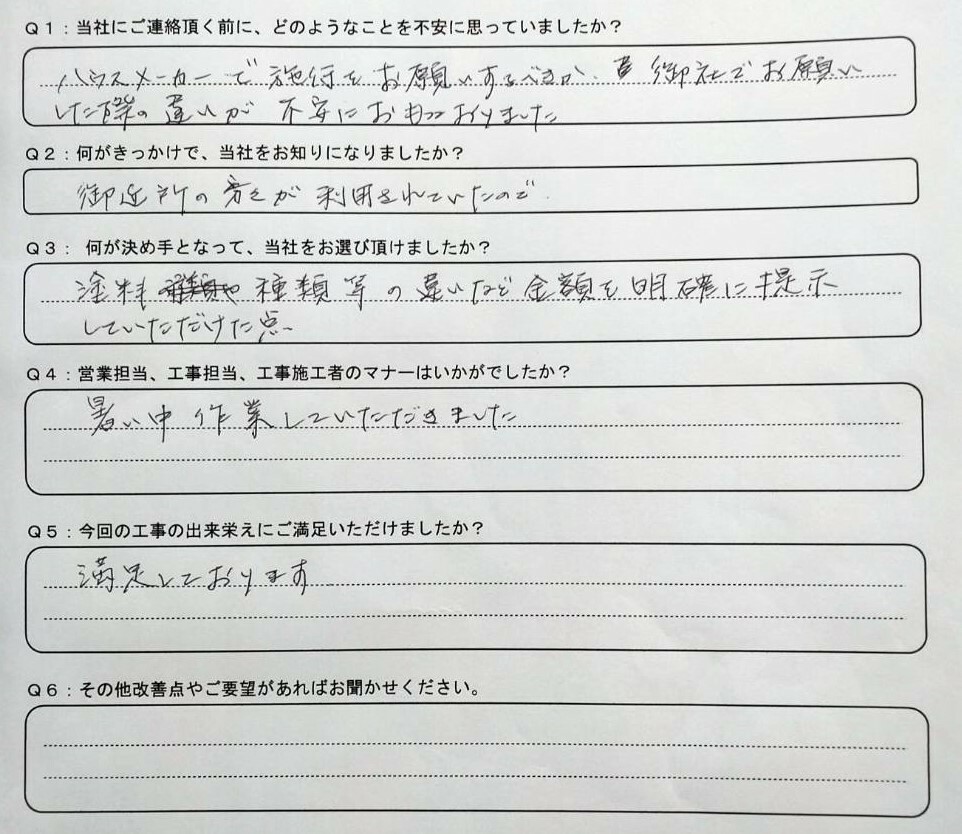 Q1：当社にご連絡頂く前に、どのようなことを不安に思っていましたか？
ハウスメーカーで施行をお願いするべきか、御社でお願い
した際の違いが不安におもっおりました
Q2：何がきっかけで、当社をお知りになりましたか？
御近所の方々が利用されていたので.
Q3： 何が決め手となって、当社をお選び頂けましたか？
塗料 種類等の違いなど金額を明確に提示
していただけた点。
Q4：営業担当、工事担当、工事施工者のマナーはいかがでしたか？
暑い中作業していただきました
Q5：今回の工事の出来栄えにご満足いただけましたか？
満足しております
Q6：その他改善点やご要望があればお聞かせください。